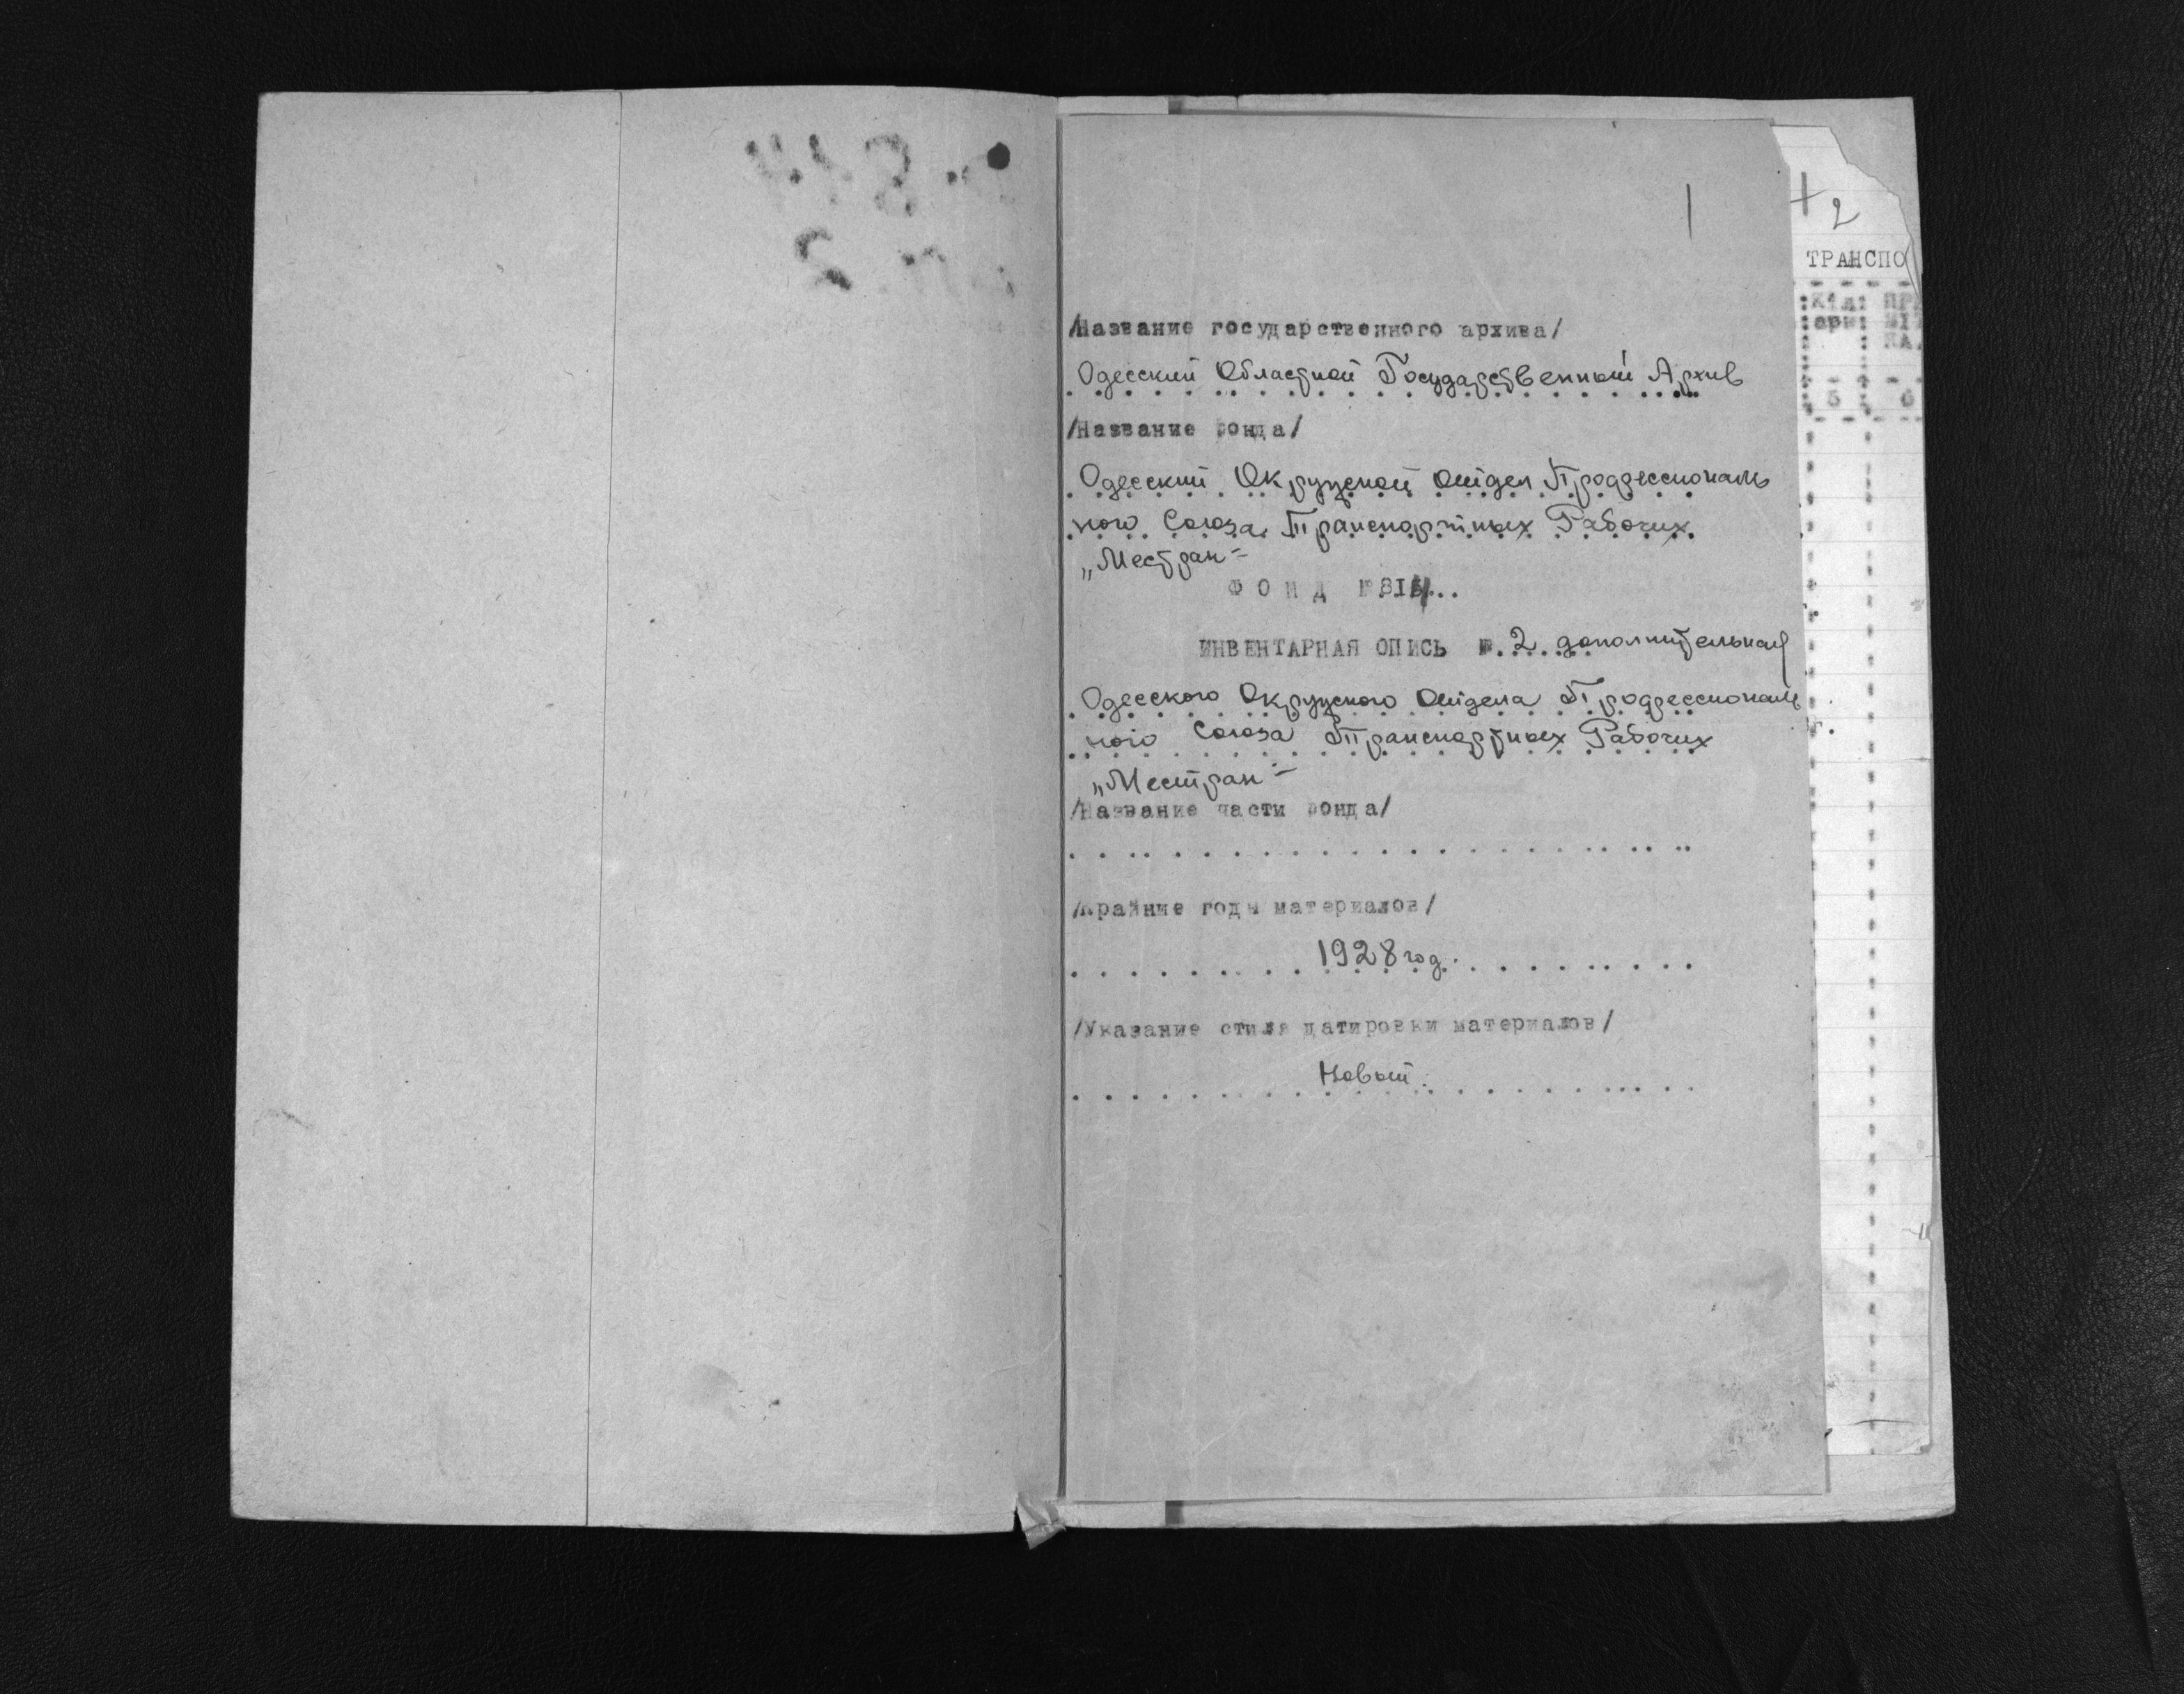 1
/Название государственного архива/
Одесский Областной Государственный Архив
/Название фонда/
Одесский Окружной Отдел Профессиональ
ного Союза Транспортных Рабочих
„Местран"
ФОНД № 814..
ИНВЕНТАРНАЯ ОПИСЬ №. 2 дополнительная
Одесского Окружного Отдела Профессиональ
ного Союза Транспортных Рабочих
„Местран"
/Название части фонда/
/Крайние годы материалов/
1928 год.
/Указание стиля датировки материалов/
Новый.
2
ТРАНСПО
5 6